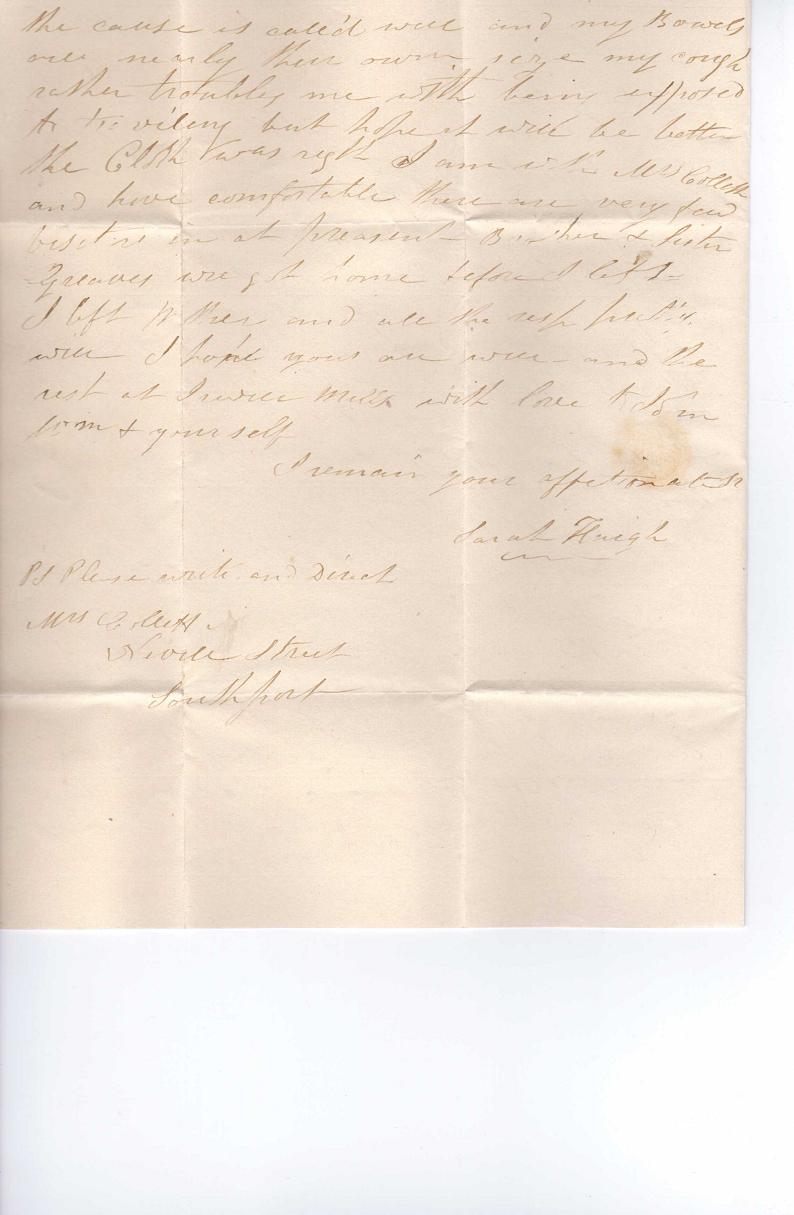 the cause is calld well and my Bowels
are nearly their own size my cough
rather troubles me with being exposed
to but hope it will be better
the Cloth was right I am with Mrs Collett
and have comfortable there are very few
visitors in at preasent Brother & Sister
Greaves were got home before I left
I left and all the
well I hope yours are well and the
rest at Irwell Mills with love to John
Wm & yourself
I remain your affetionate Sr
Sarah Haigh
PS Please write and Direct
Mrs Collett
Nevill Street
Southport